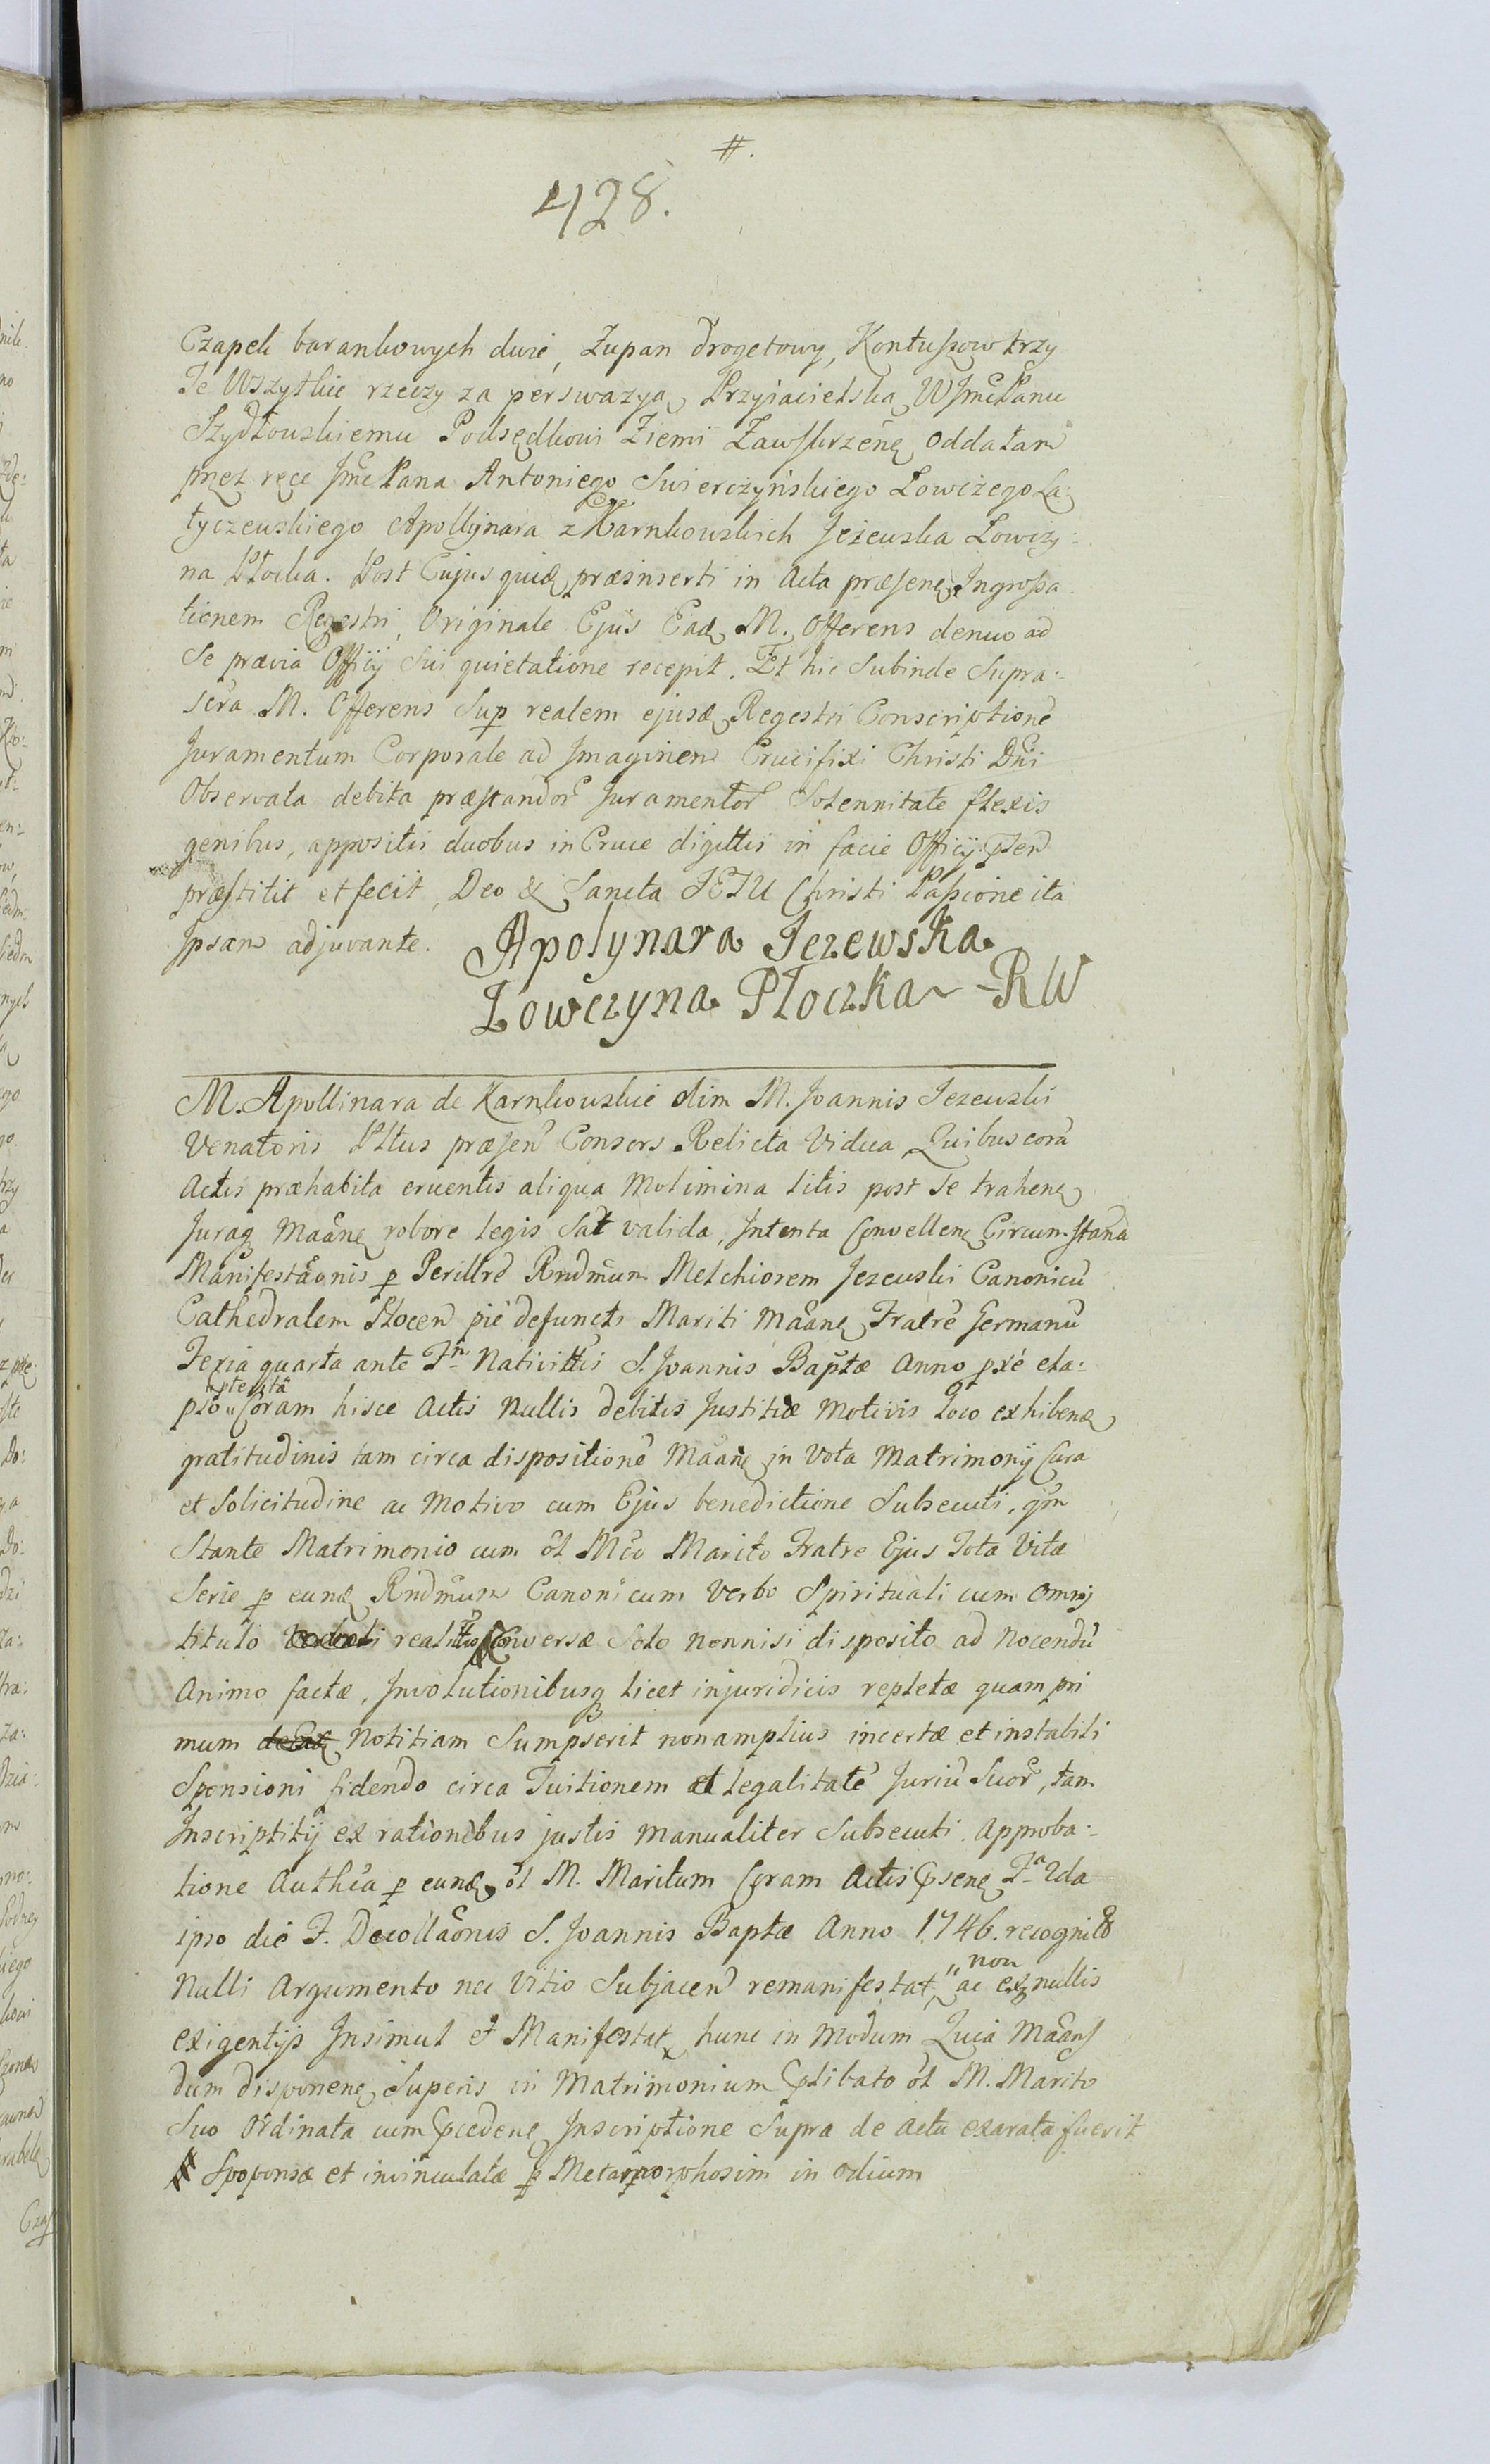 #.
428.
Czapek barankowych dwie, Żupan drogetowy, Kontuszow trzy
Te Wszytkie rzeczy za perswazyą Przyiacielską WJmć Panu
Szydłowskiemu Podsędkowi Ziemi Zawskrzeńę oddałam
przez ręce Jmć Pana Antoniego Swierczyńskiego Łowczego La
tyczewskiego Apollynara z Karnkowskich Jeżewska Łowczy:
na Płocka. Post Cujus quid præinserti in Acta præsenę Ingrossa
tionem Regestri, Originale Ejus Ead M. Offerens denuo ad
Se prævia Officij Sui quietatione recepit. Et hic Subinde Supra:
scra M. Offerens Sup realem ejusd Regestri Conscriptionē
Juramentum Corporale ad Imaginem Crucifixi Christi Dni
Observata debita præstandor Juramentor Solennitate flexis
genibus, appositis duobus in Cruce digittis in facie Officij psen
præstitit et fecit, Deo & Sancta JESU Christi Passione ita
Ipsam adjuvante. Apolynara Jezewska
Łowczyna Płoczka RW
M. Apollinara de Karnkowskie olim M. Joannis Jezewski
Venatoris Pltus præsen Consors Relicta Vidua Quibus corā
Actis præhabita eruentis aliqua Molimina litis post se trahenę
Juraq Maanę robore legis Sat valida, Intenta Convellenę Circumstana
Manifestāonis p Perillrē Rndmum Melchiorem Jezewski Canonicū
Cathedralem Plocen pie defuncti Mariti Maanę Fratrē Germanū
Feria quarta ante Fn Nativittis S. Joannis Baptæ Anno pxe ela:
pso Coram hisce Actis Nullis debitis Justitiæ Motivis Loco exhibenę
gratitudinis tam circa dispositionē Maanę in Vota Matrimonij Cura
et Solicitudine ac Motivo cum Ejus benedictione Subsecuti, qm
Stante Matrimonio cum ol Mco Marito Fratre Ejus Tota Vitæ
Serie p eund Rndmum Canonicum Verbo Spirituali cum Omnj
titulo realitus Conversæ Solo nonnisi disposito ad Nocendū
Animo factæ, Involutionibusq licet injuridicis repletæ quam pri
mum Notitiam Sumpserit non amplius incertæ et instabili
Sponsioni fidendo circa Tuitionem et legalitatē Juriū Suor, tam
Inscriptitij ex rationibus justis manualiter Subsecuti. Approba:
tione Authca p eund ol M. Maritum Coram Actis psenę Fa 2da
ipso die F. Decollāonis S. Joannis Baptæ Anno 1746. recognit
Nulli Argumento nec Vitio Subjacen remanifestat " non ac ex nullis
exigentijs Insimul et Manifestat hunc in Modum Quia Maans
dum disponenę Superis in Matrimonium plibato ol M. Marito
Suo Ordinata cum pcedenę Inscriptione Supra de Actu exarata fuerit
# Sponsæ et invinculatæ p Metamorphosim in Odium